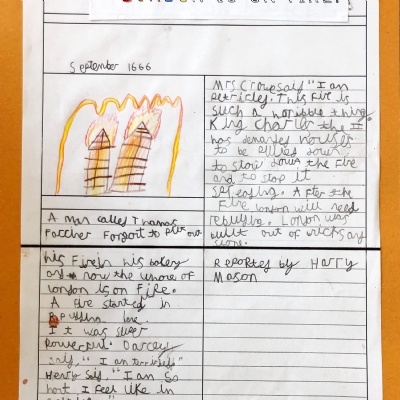 LONDON IS ON FIRE!
September 1666
A man called Thomas
Faccher Forgot to put out
his Fire in his bakery
and now the whole of
London is on Fire.
A Fire started in
Pudding lane.
It was super
Powerful. Darcey
said, "I am terrified"
Henry said, "I am so
hot I feel like in
Mrs Crowe said "I am
petrified. This Fire is
such a horrible thing.
King Charles the II
has demanded houses
to be pulled down
to slow down the Fire
and to stop it
spreading. After the
Fire London will need
rebuilding. London was
built out of bricks and
stone.
Reported by Harry
Mason